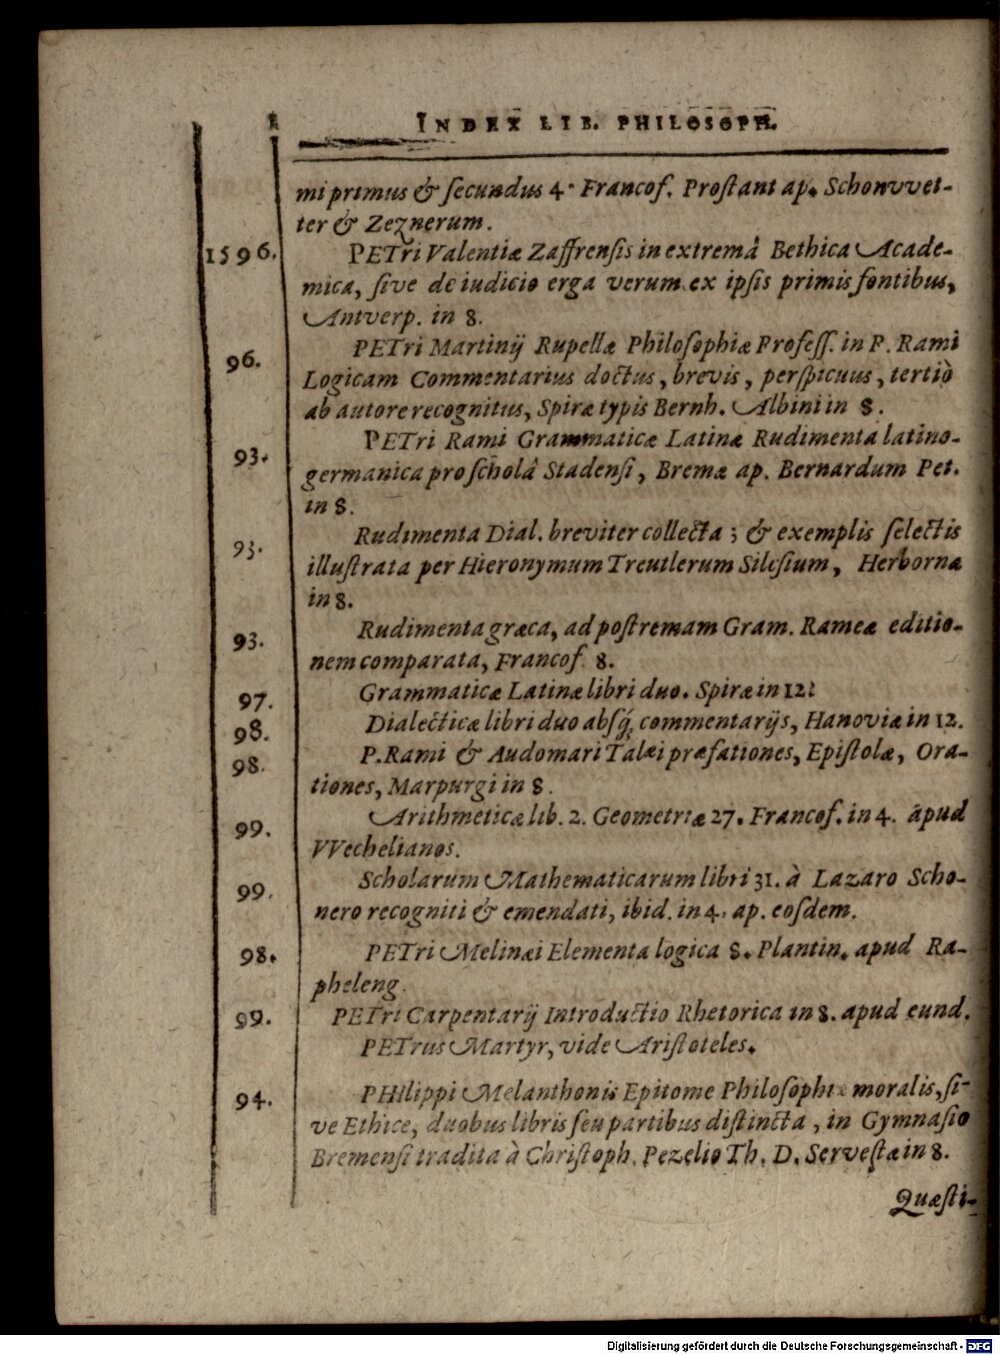 INDEX LIB. PHILOSOPH.
mi primus & ſecundus 4. Francof. Proſtant ap. Schonvvet-
ter & Zeznerum.
1596. PETri Valentiæ Zaffrenſis in extremâ Bethica Acade-
mica, ſive de iudicio erga verum ex ipſis primis fontibus,
Antverp. in 8.
96. PETri Martinij Rupellæ Philoſophiæ Profeſſ. in P. Rami
Logicam Commentarius doctus, brevis, perſpicuus, tertiò
ab autore recognitus, Spiræ typis Bernh. Albini in 8.
93. PETri Rami Grammaticæ Latinæ Rudimenta latino-
germanica pro ſcholâ Stadenſi, Bremæ ap. Bernardum Pet.
in 8.
93. Rudimenta Dial. breviter collecta; & exemplis ſelectis
illuſtrata per Hieronymum Treutlerum Sileſium, Herbornæ
in 8.
93. Rudimenta græca, ad poſtremam Gram. Rameæ editio-
nem comparata, Francof. 8.
97. Grammaticæ Latinæ libri duo. Spiræ in 12.
98. Dialecticæ libri duo abſq; commentarijs, Hanoviæ in 12.
98. P. Rami & Audomari Talæi præfationes, Epiſtolæ, Ora-
tiones, Marpurgi in 8.
99. Arithmeticæ lib. 2. Geometriæ 27. Francof. in 4. apud
VVechelianos.
99. Scholarum Mathematicarum libri 31. à Lazaro Scho-
nero recogniti & emendati, ibid. in 4. ap. eoſdem.
98. PETri Melinæi Elementa logica 8. Plantin. apud Ra-
pheleng.
99. PETri Carpentarij Introductio Rhetorica in 8. apud eund.
PETrus Martyr, vide Ariſtoteles.
94. PHilippi Melanthonis Epitome Philoſophiæ moralis, ſi-
ve Ethice, duobus libris ſeu partibus diſtincta, in Gymnaſio
Bremenſi tradita à Chriſtoph. Pezelio Th. D. Serveſtæ in 8.
Quæſti-
Digitalisierung gefördert durch die Deutsche Forschungsgemeinschaft - DFG